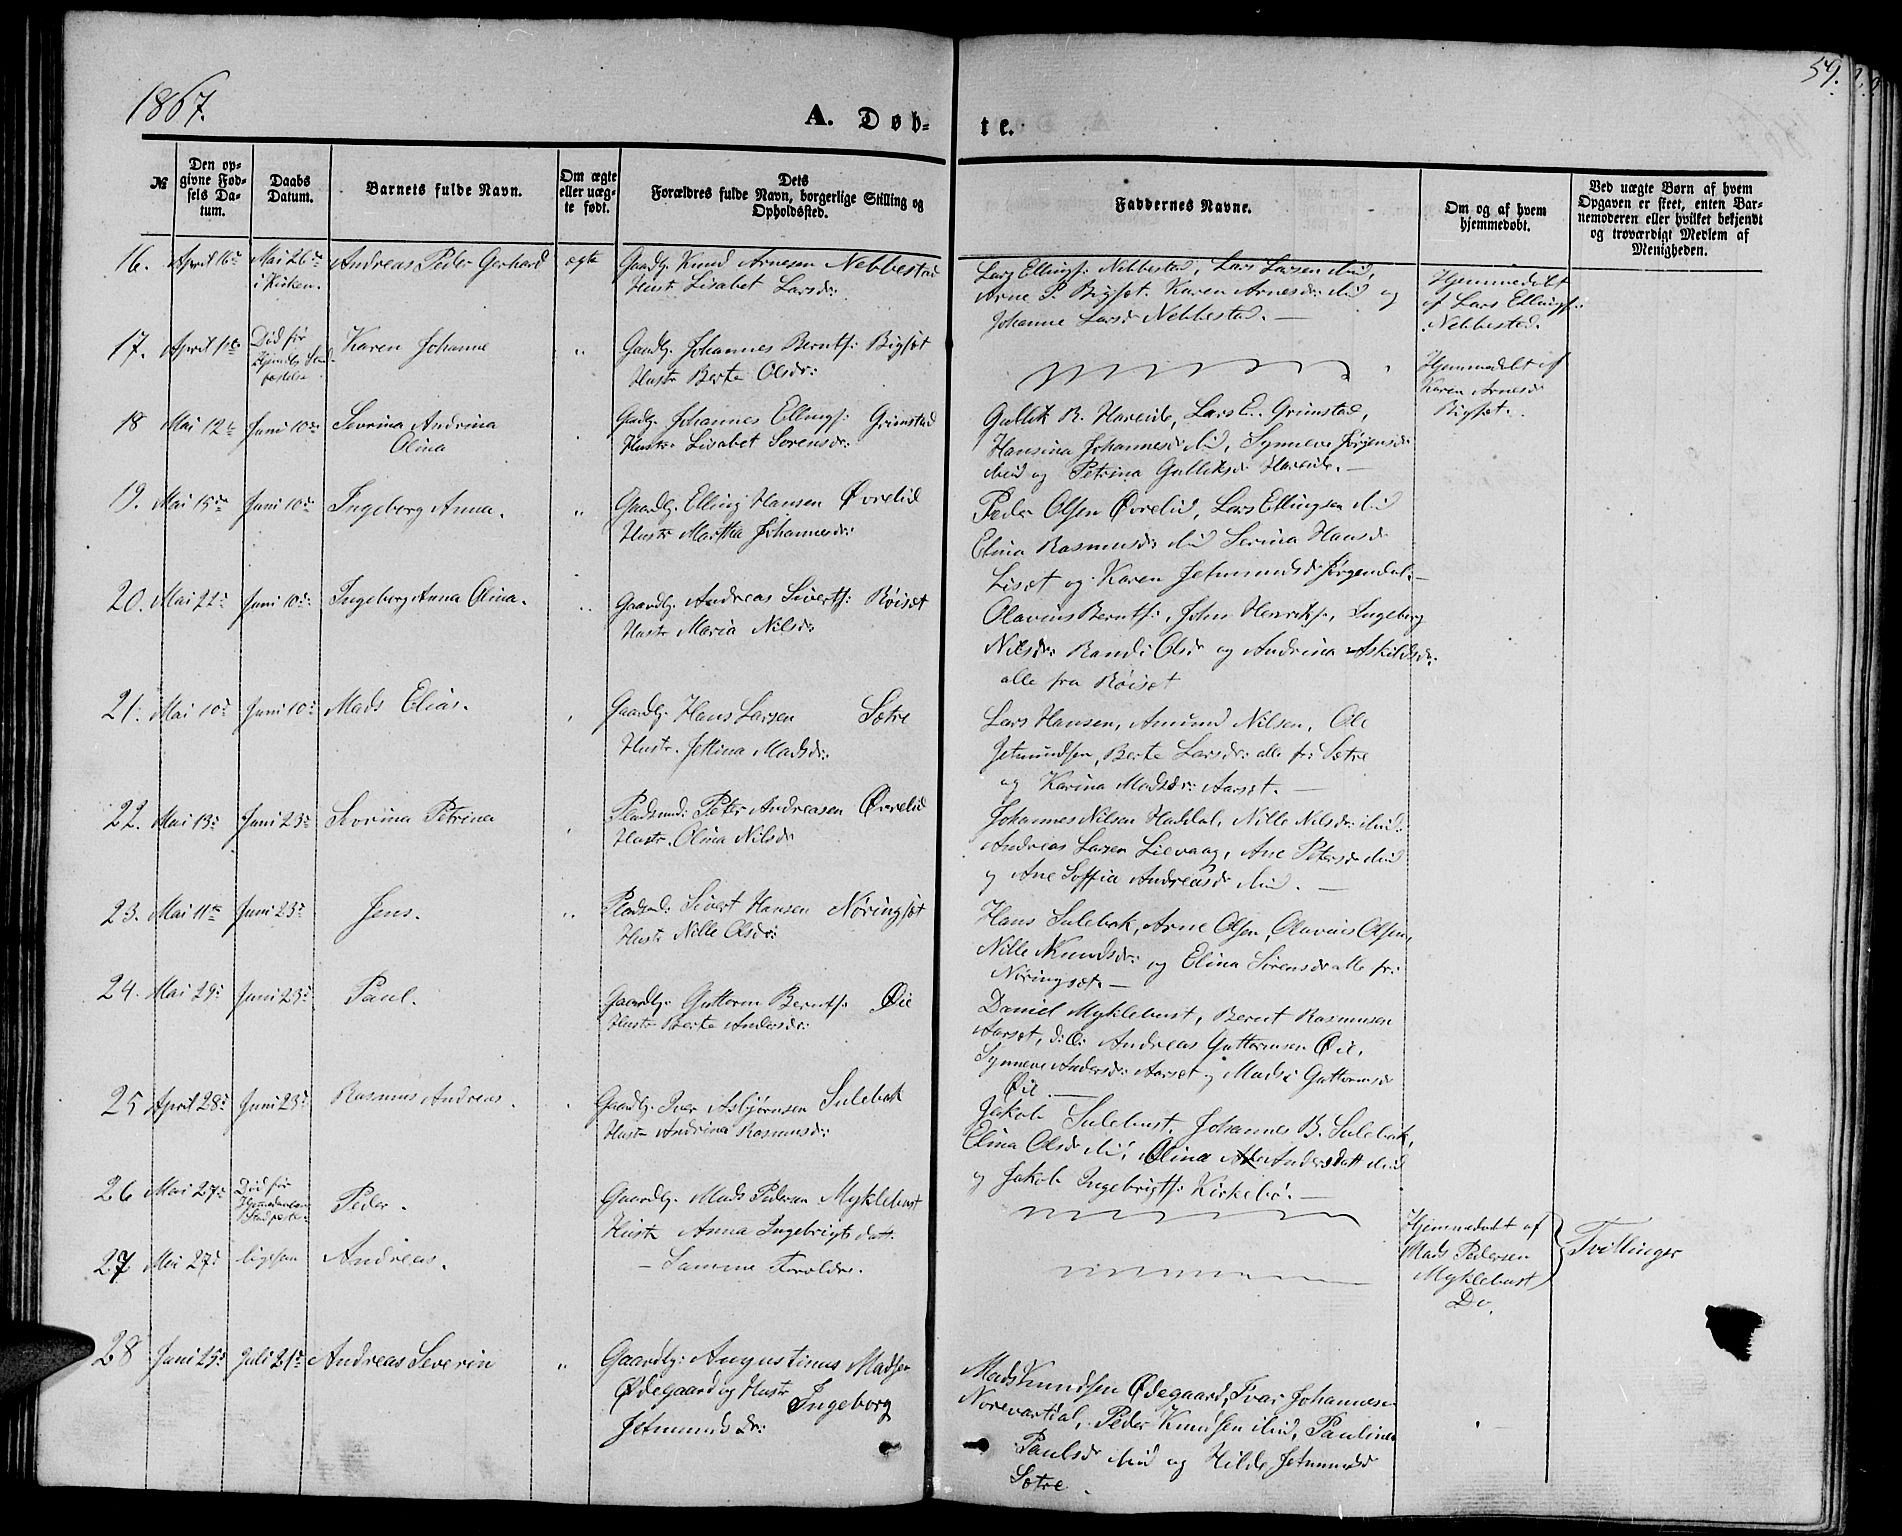 1867.
A. Døb-
te.
59.
№
Den op-
givne Fød-
sels Da-
tum.
Daabs
Datum.
Barnets fulde Navn.
Om ægte
eller uæg-
te født.
Dets
Forældres fulde Navn, borgerlige Stilling og
Opholdssted.
Faddernes Navne.
Om og af hvem
hjemmedøbt.
Ved uægte Børn af hvem
Opgaven er skeet, enten Bar-
nemoderen eller hvilket bekjendt
og troværdigt Medlem af
Menigheden.
16. April 16de Mai 26de Andreas Peder Gerhard ægte Gaardbr. Knud Arnesen Nebbestad
i Kirken. Hustr. Lisabet Larsdr:
Lars Ellingss: Nebbestad, Lars Larsen ibid,
Arne P. Bigset. Karen Arnesdr ibid og
Johanne Larsdr Nebbestad. —
Hjemmedøbt
af Lars Ellingss:
Nebbestad.
17. April Død før Karen Johanne „ Gaardbr. Johannes Berntss: Bigset
Hustr Berte Olsdr:
Hjemmedøbt af
Karen Arnesdr
Bigset.
18 Mai 12te Juni 10de Severina Andrina Gaardbr. Johannes Ellingss: Grimstad
Olina Hustr: Lisabet Sørensdr:
Gullik R. Hareide, Lars E. Grimstad,
Hansina Johannesdr ibid, Synneve Jørgensdr
ibid og Petrina Gulliksdr Hareide. —
19. Mai 15de Juni 10de Ingeborg Anna. „ Gaardbr. Elling Hansen Øvrelid
Hustr Martha Johannesdr:
Peder Olsen Øvrelid, Lars Ellingsen ibid
Elina Rasmusdr ibid Serina Hansdr
Liset og Karen Jetmundsdr Jørgendal. —
20. Mai 22de Juni 10de Ingeborg Anna Olina. „ Gaardbr. Andreas Sivertss: Røiset
Hustr Maria Nilsdr
Olavius Berntss:, John Henrikss:, Ingeborg
Nilsdr: Randi Olsdr og Andrina Askildsdr:
alle fra Røiset
21. Mai 10de Juni 10de Mads Elias. Gaardbr. Hans Larsen Sætre
Hustr. Jettina Madsdr:
Lars Hansen, Amund Nilsen, Ole
Jetmundsen, Berte Larsdr: alle fr: Sætre
og Karina Madsdr: Aarset. —
22. Mai 13de Juni 23de Severina Petrina Pladsmd: Peter Andreasen Øvrelid
Hustr. Olina Nilsdr
Johannes Nilsen Haddal, Nille Nilsdr: ibid:
Andreas Larsen Lievaag, Ane Petersdr ibid
og Ane Soffia Andreasdr ibid. —
23. Mai 11te Juni 23de Jens. „ Pladsmd: Sivert Hansen Nøringset
Hustr Nille Olsdr:
Hans Sulebak, Arne Olsen, Olavius Olsen,
Nille Knudsdr: og Elina Sørensdr alle fr:
Nøringset. —
24. Mai 29de Juni 23de Paul. Gaardbr: Guttorm Berntss: Øie
Hustr Berte Andersdr:
Daniel Myklebust, Bernt Rasmusen
Aarset, d: Andreas Guttormsen Øie,
Synneve Andersdr: Aarset og Madsi Guttormsdr
Øie —
25 April 28de Juni 23de Rasmus Andreas. Gaardbr. Iver Asbjørnsen Sulebak
Hustr Andrina Rasmusdr:
Jakob Sulebust. Johannes B. Sulebak,
Elina Olsdr ibid, Olina Andersdatt ibid
og Jakob Ingebrigtss: Kirkebø. —
26 Mai 27de Død før Peder. Gaardbr. Mads Pedersen Myklebust
Hustr Anna Ingebrigtsdatt.
Hjemmedøbt af
Mads Pedersen
Myklebust
Tvillinger
27 Mai 27de ligesaa Andreas. — Samme Forældre.
Do.
28 Juni 25de Juli 21de Andreas Severin „ Gaardbr: Augustinus Madsen
Ødegaard og Hustr Ingeborg
Jetmundsdr:
Mads Knudsen Ødegaard, Ivar Johannesen
Norevartdal, Peder Knudsen ibid, Pauline
Paulsdr ibid og Hilde Jetmundsdr
Sætre.